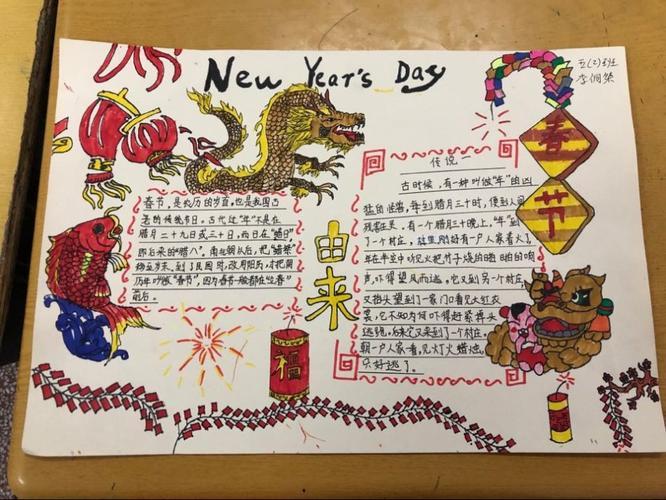 New Year's Day
五(2)班
春
节
春节,是农历的岁首,也是我国古
老的传统节日。古代过“年”不是在
腊月二十九日或三十日,而日在“蜡日”,
即后来的“腊八”。南北朝以后,把“蜡祭”
移至岁末,到了民国时,改用阳历,才把阴
历年叫做“春节”,因为春节一般都在“立春”
前后。
由来
福
传说一
古时候,有一种叫做“年”的凶
猛的怪兽,每到腊月三十时,便到人间
残害生灵。有一个腊月三十晚上,“年”到
了一个村庄,刚好有一户人家着火了,
年在半空中听见火把竹子烧的啪啪的响
声,吓得望风而逃。它又到另一个村庄,
又抬头望到了一家门口看见大红衣
裳,它不知为何吓得赶紧掉头
逃跑,后来它又来到了一个村庄,
朝一户人家一看,见灯火蜡烛,
只好逃了。